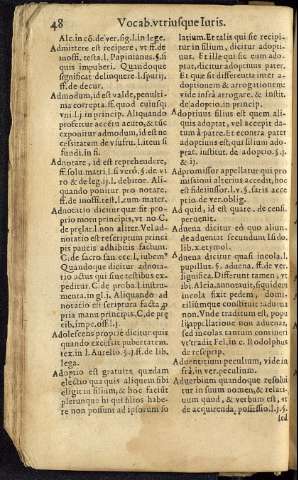 48 Vocab. vtriusque Iuris.
Alc. in cō. de ver. sig. l. in lege.
Admittere est recipere, vt ff. de
inoffi. testa. l. Papinianus. §. si
quis impuberi. Quandoque
significat delinquere. l. spurij,
ff. de decur.
Admodum, id est valde, penulti-
ma correpta. ff. quod cuiusq;
vni. l. j. in princip. Aliquando
profertur accēto acuto, & tūc
exponitur admodum, id est ne
cessitatem de vsufru. l. item si
fundi. in fi.
Adnotare, id est reprehendere,
ff. solu. matri. l. si verò. §. de vi-
ro & de leg. ij. l. debitor. Ali-
quando ponitur pro notare.
ff. de inoffi. test. l. cum mater.
Adnotatio dicitur quæ fit pro-
prio mom principis, vt no. C.
de prelat. l. non aliter. Vel ad-
notatio est rescriptum princi
pis paucis adhibitis factum.
C. de sacro san. ecc. l. iubem⁹
Quandoque dicitur adnota-
tio actus qui sine testibus ex-
peditur. C. de proba. l. instru-
menta. in gl. i. Aliquando ad
notatio est scriptura facta pp
pria manu principis. C. de pre
cib. impo. off. l. j.
Adolescens propriè dicitur quis
quando excessit pubertatem.
tex. in l. Aurelio. §. j. ff. de lib.
lega.
Adoptio est gratuita quædam
electio qua quis aliquem sibi
eligit in filium, & hoc faciūt
plerunque hi qui filios habe-
re non possunt ad ipsorum so
latium. Et talis qui sic recipi-
tur in filium, dicitur adopti-
uus. Et ille qui sic eum ado-
ptat, dicitur adoptiuus pater.
Et quæ sit differentia inter a-
doptionem & arrogationem:
vide infrà arrogare, & instit.
de adoptio. in princip.
Adoptiuus filius est quem ali-
quis adoptat, vel accepit da-
tum à patre. Et econtra pater
adoptiuus est qui filium ado-
ptat. institut. de adoptio. §. j.
& ij.
Adpromissor appellatur qui pro
missioni alterius accedit, hoc
est fideiussor. l. v. §. satis acce
ptio. de ver. oblig.
Ad quid, id est quare. de censi.
peruenit.
Aduena dicitur eò quo aliun-
de aduentat secundum Isido.
lib. x. etymol.
Aduena dicitur quasi incola. l.
pupillus. §. aduena. ff. de ver.
significa. Differunt tamen, vt
ibi Alcia. annotauit, siquidem
incola fixit pedem, domi-
ciliūmque constituit: aduena
non. Vnde traditum est, popu
li appellatione non aduenas,
sed incolas tantum contineri
vt tradit Feli. in c. Rodolphus
de rescrip.
Aduentitium peculium, vide in-
frà, in ver. peculium.
Aduerbium quandoque resolui
tur in suum nomen, & relati-
uum quod, & verbum est, vt
de acquirenda, possessio. l. j. §.
sed